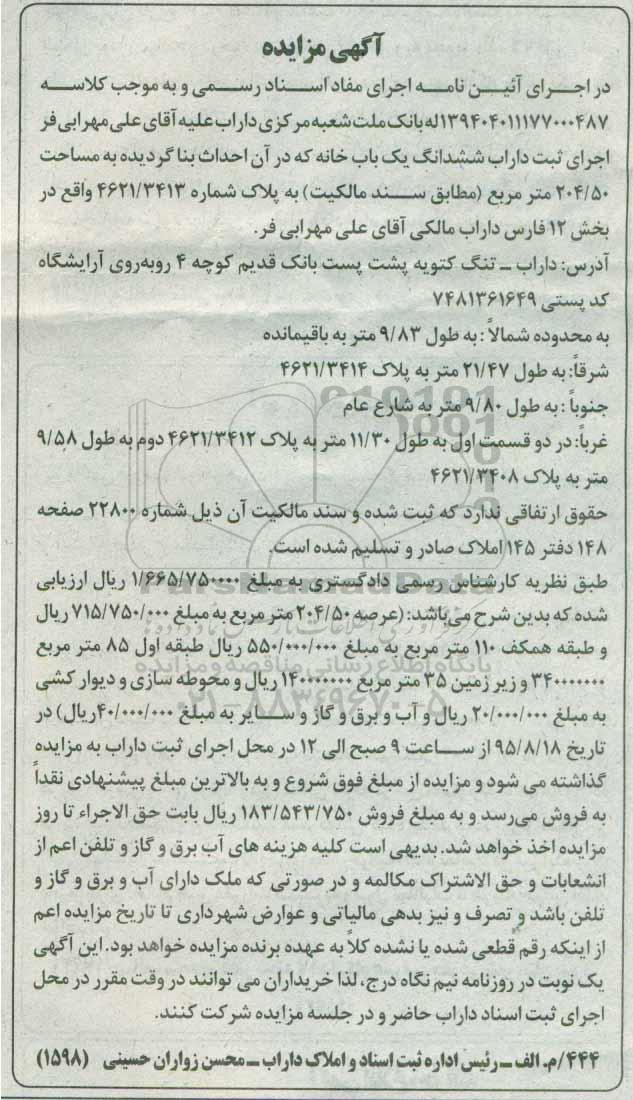 آگهی مزایده
در اجـرای آئیـن نامـه اجرای مفاد اسـناد رسـمی و به موجب کلاسـه
۱۳۹۴۰۴۰۱۱۱۷۷۰۰۰۴۸۷ له بانک ملت شعبه مرکزی داراب علیه آقای علی مهرابی فر
اجرای ثبت داراب ششدانگ یک باب خانه که در آن احداث بنا گردیده به مساحت
۲۰۴/۵۰ متر مربع (مطابق سـند مالکیت) به پلاک شماره ۴۶۲۱/۳۴۱۳ واقع در
بخش ۱۲ فارس داراب مالکی آقای علی مهرابی فر.
آدرس: داراب ـ تنگ کتویه پشت پست بانک قدیم کوچه ۴ روبه‌روی آرایشگاه
کد پستی ۷۴۸۱۳۶۱۶۴۹
به محدوده شمالاً : به طول ۹/۸۳ متر به باقیمانده
شرقاً: به طول ۲۱/۴۷ متر به پلاک ۴۶۲۱/۳۴۱۴
جنوباً : به طول ۹/۸۰ متر به شارع عام
غرباً: در دو قسمت اول به طول ۱۱/۳۰ متر به پلاک ۴۶۲۱/۳۴۱۲ دوم به طول ۹/۵۸
متر به پلاک ۴۶۲۱/۳۴۰۸
حقوق ارتفاقی ندارد که ثبت شده و سند مالکیت آن ذیل شماره ۲۲۸۰۰ صفحه
۱۴۸ دفتر ۱۴۵ املاک صادر و تسلیم شده است.
طبق نظریه کارشناس رسمی دادگستری به مبلغ ۱/۶۶۵/۷۵۰۰۰۰ ریال ارزیابی
شده که بدین شرح می‌باشد: (عرصه ۲۰۴/۵۰ متر مربع به مبلغ ۷۱۵/۷۵۰/۰۰۰ ریال
و طبقه همکف ۱۱۰ متر مربع به مبلغ ۵۵۰/۰۰۰/۰۰۰ ریال طبقه اول ۸۵ متر مربع
۳۴۰۰۰۰۰۰۰ و زیر زمین ۳۵ متر مربع ۱۴۰۰۰۰۰۰ ریال و محوطه سازی و دیوار کشی
به مبلغ ۲۰/۰۰۰/۰۰۰ ریال و آب و برق و گاز و سـایر به مبلغ ۴۰/۰۰۰/۰۰۰ریال) در
تاریخ ۹۵/۸/۱۸ از سـاعت ۹ صبح الی ۱۲ در محل اجرای ثبت داراب به مزایده
گذاشته می شود و مزایده از مبلغ فوق شروع و به بالاترین مبلغ پیشنهادی نقداً
به فروش می‌رسد و به مبلغ فروش ۱۸۳/۵۴۳/۷۵۰ ریال بابت حق الاجراء تا روز
مزایده اخذ خواهد شد. بدیهی است کلیه هزینه های آب برق و گاز و تلفن اعم از
انشعابات و حق الاشتراک مکالمه و در صورتی که ملک دارای آب و برق و گاز و
تلفن باشد و تصرف و نیز بدهی مالیاتی و عوارض شهرداری تا تاریخ مزایده اعم
از اینکه رقم قطعی شده یا نشده کلاً به عهده برنده مزایده خواهد بود. این آگهی
یک نوبت در روزنامه نیم نگاه درج، لذا خریداران می توانند در وقت مقرر در محل
اجرای ثبت اسناد داراب حاضر و در جلسه مزایده شرکت کنند.
۴۴۴/م. الف ـ رئیس اداره ثبت اسناد و املاک داراب ـ محسن زواران حسینی (۱۵۹۸)